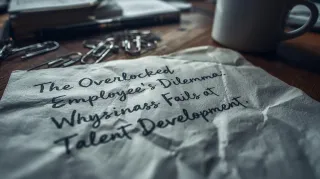 The Overlocked
Employee's Dilemma
Whysinass Fails at
Talent Development.